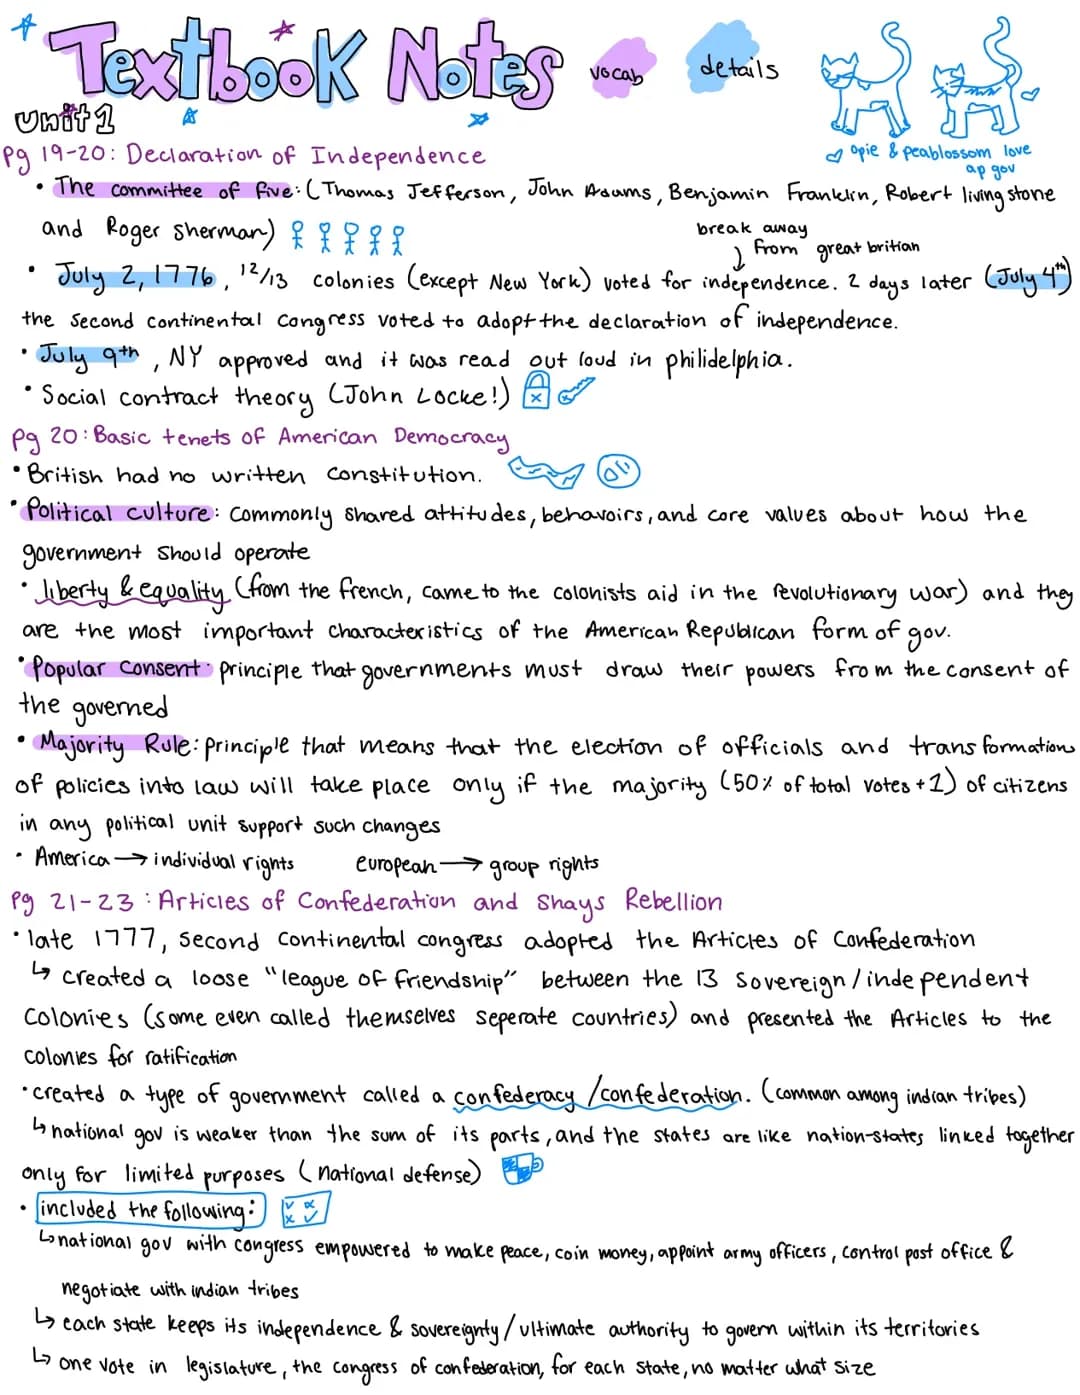 Textbook Notes
vocab
details
Unit 1
opie & peablossom love
ap gov
pg 19-20: Declaration of Independence
• The committee of five: (Thomas Jefferson, John Adams, Benjamin Franklin, Robert livingstone
and Roger Sherman)
break away
from great britian
• July 2, 1776, 12/13 colonies (except New York) voted for independence. 2 days later (July 4th)
the second continental congress voted to adopt the declaration of independence.
• July 9th, NY approved and it was read out loud in philidelphia.
• Social contract theory (John Locke!)
pg 20: Basic tenets of American Democracy
• British had no written constitution.
• Political culture: commonly shared attitudes, behavoirs, and core values about how the
government should operate
• liberty & equality (from the french, came to the colonists aid in the revolutionary war) and they
are the most important characteristics of the American Republican form of gov.
• Popular Consent: principle that governments must draw their powers from the consent of
the governed
• Majority Rule: principle that means that the election of officials and transformation
of policies into law will take place only if the majority (50% of total votes +1) of citizens
in any political unit support such changes
• America → individual rights european → group rights
pg 21-23: Articles of Confederation and Shays Rebellion
• late 1777, Second Continental congress adopted the Articles of Confederation
↳ created a loose "league of friendship" between the 13 Sovereign/independent
colonies (some even called themselves seperate countries) and presented the Articles to the
colonies for ratification
• created a type of government called a confederacy/confederation. (common among indian tribes)
↳ national gov is weaker than the sum of its parts, and the states are like nation-states linked together
only for limited purposes (national defense)
• included the following:
↳ national gov with congress empowered to make peace, coin money, appoint army officers, control post office &
negotiate with indian tribes
↳ each state keeps its independence & sovereignty/ultimate authority to govern within its territories
↳ one vote in legislature, the congress of confederation, for each state, no matter what size